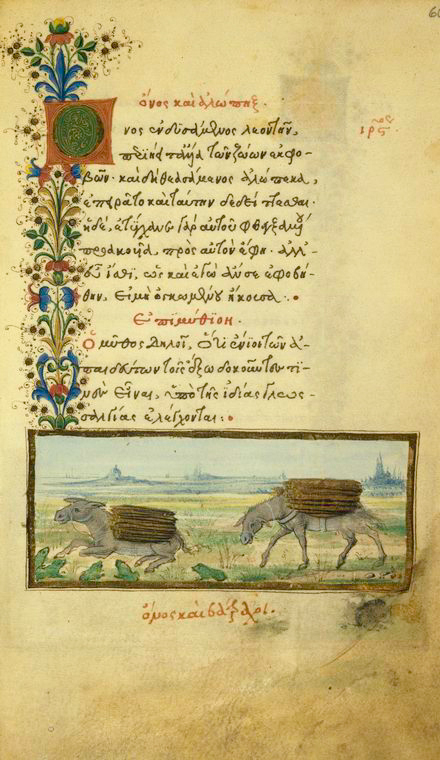 ὄνος καὶ ἀλώπηξ.
Ὄνος ἐνδυσάμενος λεοντῆν,
περιῄει τἄλλα τῶν ζώων ἐκφο-
βῶν. καὶ δὴ θεασάμενος ἀλώπεκα,
ἐπειρᾶτο καὶ ταύτην δεδίττεσθαι.
ἡ δὲ, ἐτύγχανε γὰρ αὐτοῦ φθεγξαμένου
προακηκουῖα, πρὸς αὐτὸν ἔφη. ἀλλ'
εὖ ἴσθι, ὡς καὶ ἐγὼ ἄν σε ἐφοβή-
θην, εἰ μὴ ὀγκωμένου ἤκουσα.
Ἐπιμύθιον.
Ὁ μῦθος δηλοῖ, ὅτι ἔνιοι τῶν ἀ-
παιδεύτων τοῖς ἔξω δοκοῦντες τι-
εἶναι, ὑπὸ τῆς ἰδίας γλωσ-
σαλγίας ἐλέγχονται.
ὄνος καὶ βάτραχοι.